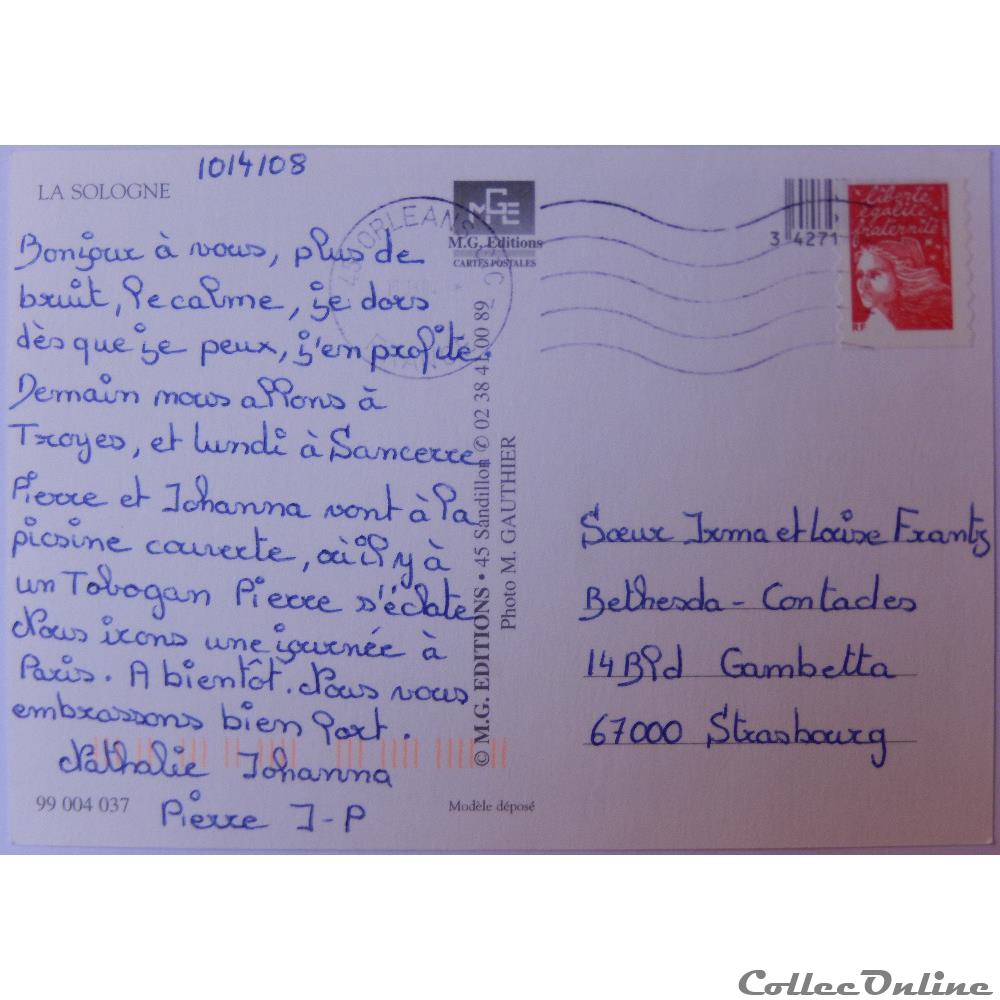 10/4/08
LA SOLOGNE
Bonjour à vous, plus de
bruit, le calme, je dors
dès que je peux, j'en profite.
Demain nous allons à
Troyes, et lundi à Sancerre
Pierre et Johanna vont à la
picsine couverte, où il y à
un Tobogan Pierre s'éclate
Nous irons une journée à
Paris. A bientôt. Nous vous
embrassons bien fort.
Nathalie Johanna
Pierre J-P
99 004 037
M.G. Editions
CARTES POSTALES
© M.G. EDITIONS • 45 Sandillon ✆ 02 38 41 00 89
Photo M. GAUTHIER
Modèle déposé
45 ORLEANS
3 4271
liberté
égalité
fraternité
RF
Sœur Irma et Louise Frantz
Bethesda - Contades
14 Bld Gambetta
67000 Strasbourg
CollecOnline